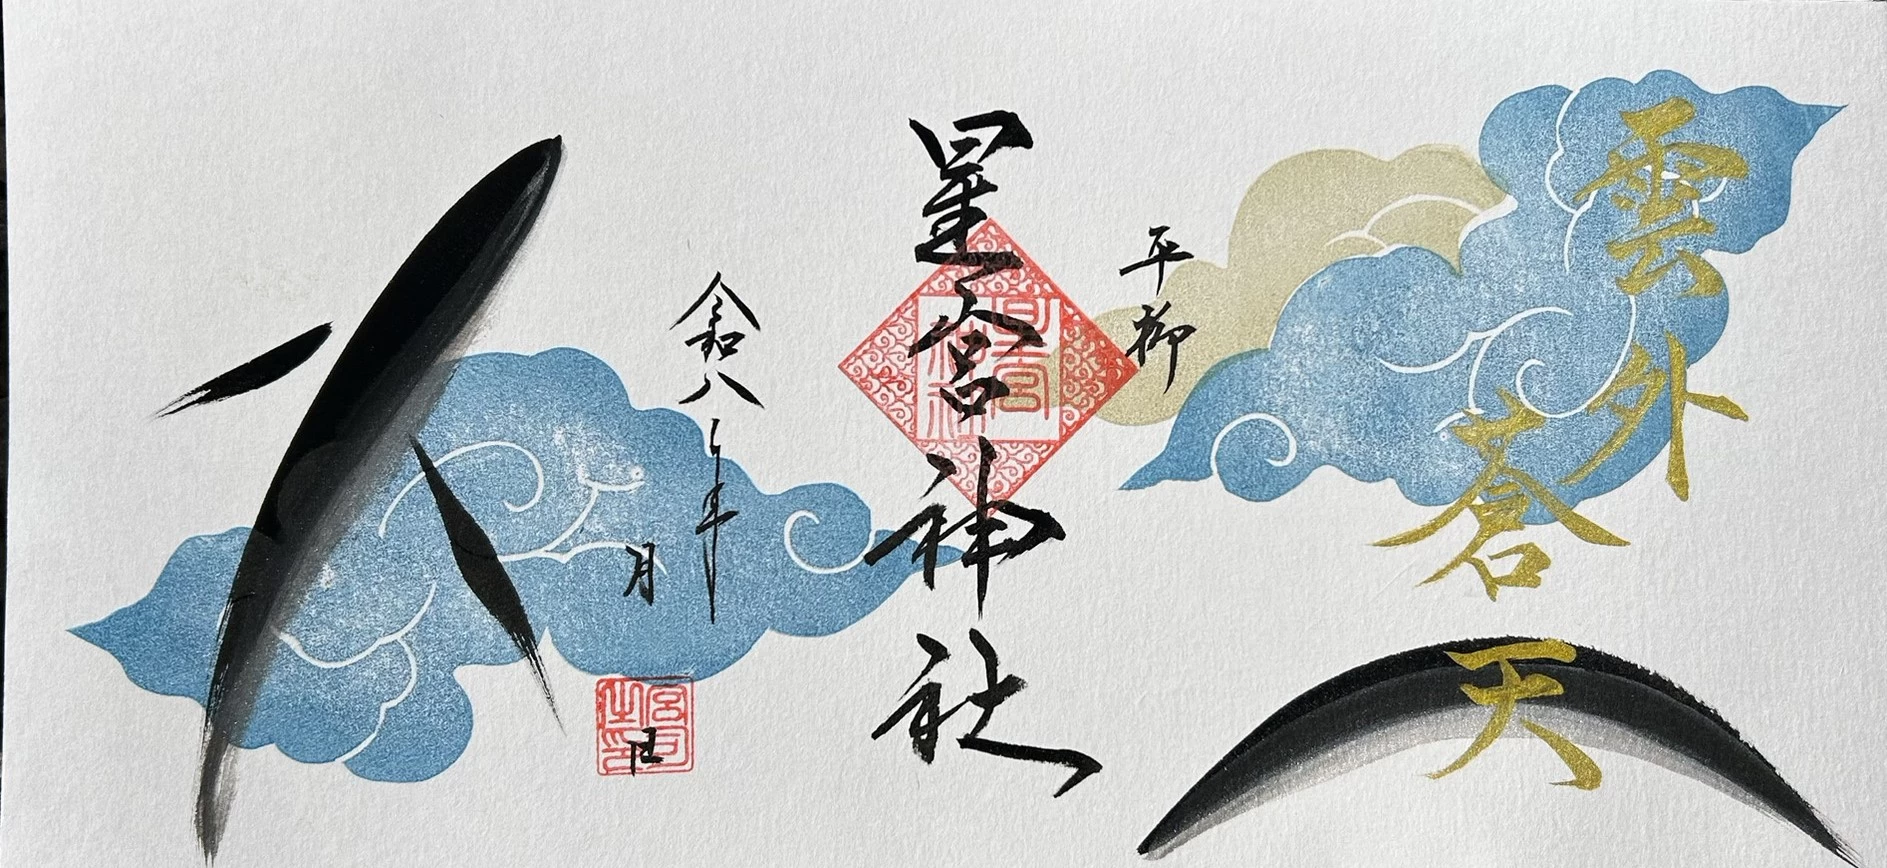 雲外
蒼天
平柳
星宮神社
星宮
神社
令和八年
月
日
宮司
之印